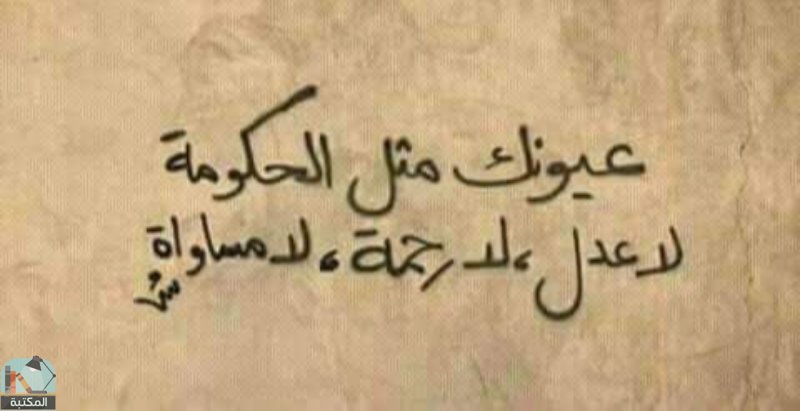 عيونك مثل الحكومة
لا عدل ،لا رحمة ، لا مساواة
المكتبة